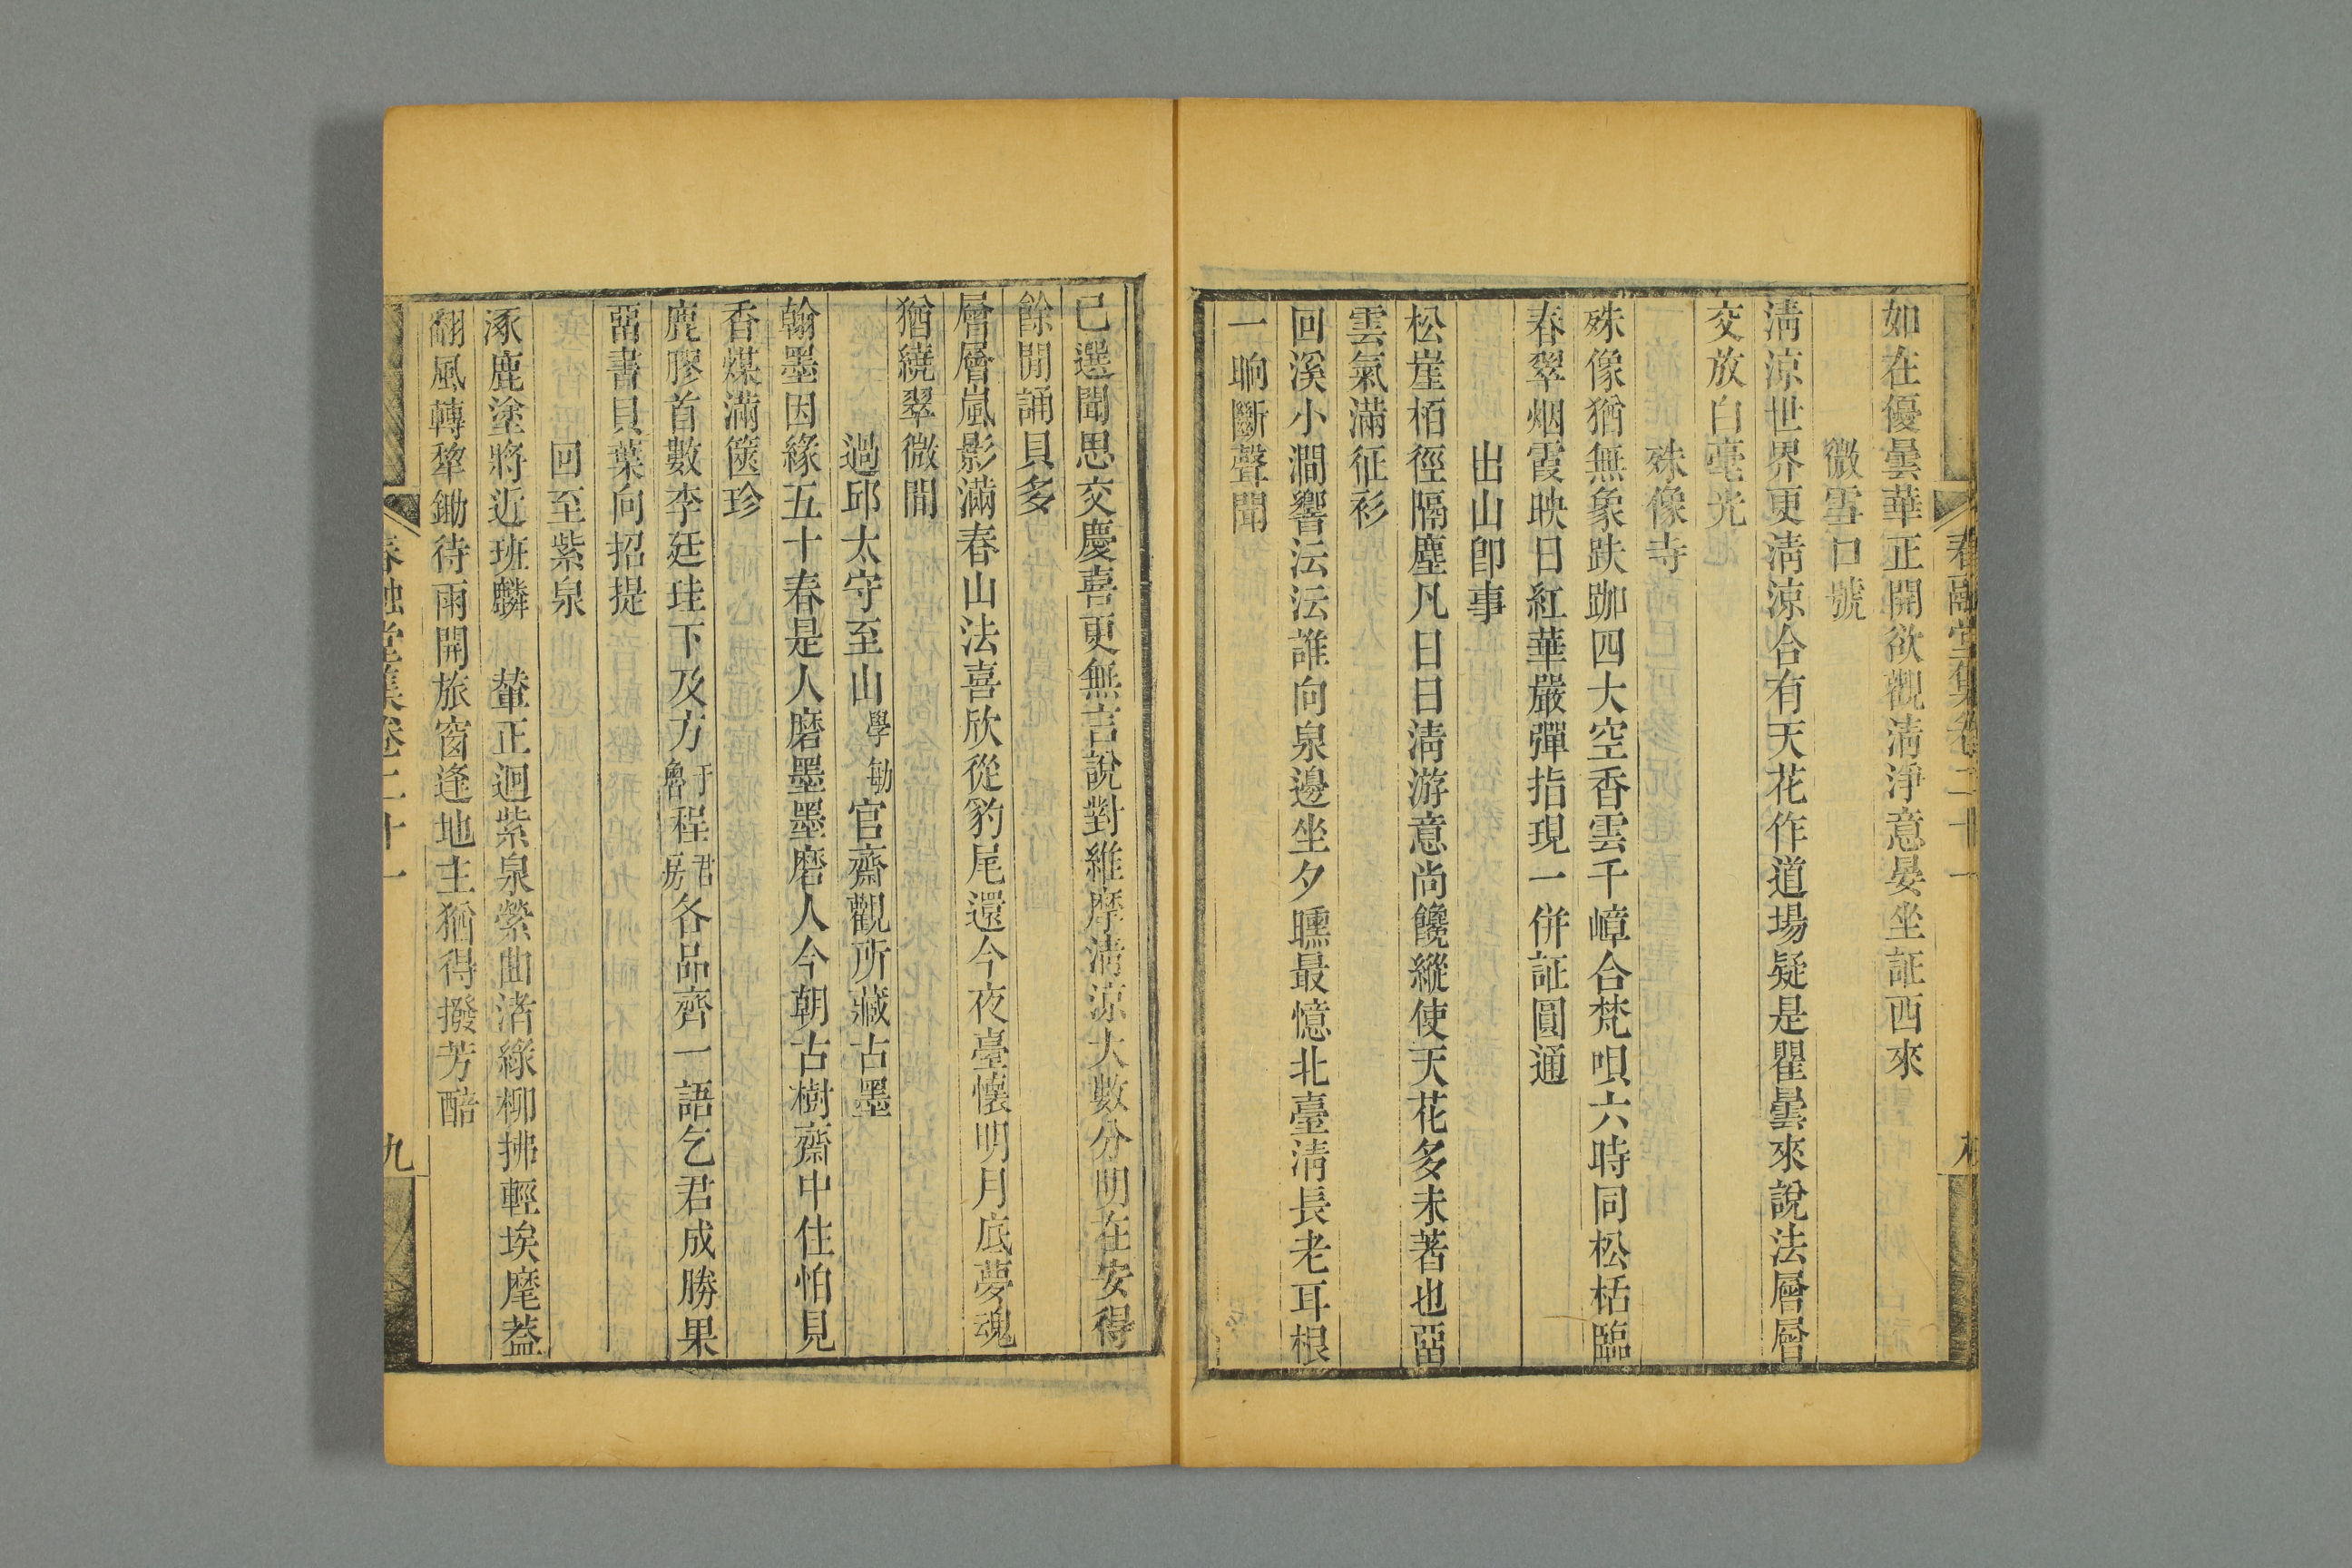 春融堂集卷二十一
如在優曇華正開欲觀清淨意晏坐証西來
微雪口號
清涼世界更清涼合有天花作道場疑是瞿曇來說法層層
交放白毫光
殊像寺
殊像猶無象趺跏四大空香雲千嶂合梵唄六時同松栝臨
春翠烟霞映日紅華嚴彈指現一併証圓通
出山卽事
松崖栢徑隔塵凡日日清游意尚饞縱使天花多未著也䍐
雲氣滿征衫
回溪小澗響沄沄誰向泉邊坐夕曛最憶北臺清長老耳根
一晌斷聲聞
已選聞思交慶喜更無言說對維摩清涼大數分明在安得
餘閒誦貝多
層層嵐影滿春山法喜欣從豹尾還今夜臺懷明月底夢魂
猶繞翠微間
過邱太守至山學敏官齋觀所藏古墨
翰墨因緣五十春是人磨墨墨磨人今朝古樹齋中住怕見
香煤滿篋珍
鹿膠首數李廷珪下及方于魯程君房各品齊一語乞君成勝果
䍐書貝葉向招提
回至紫泉
涿鹿塗將近班麟輦正迴紫泉縈曲渚綠柳拂輕埃麾葢
翻風轉犂鋤待雨開旅窗逢地主猶得撥芳醅
春融堂集卷二十一
九